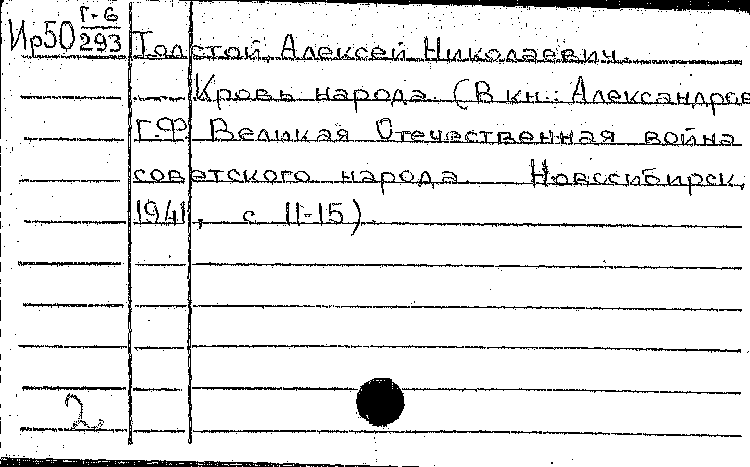 Ир50 Г-6/293
Толстой, Алексей Николаевич.
Кровь народа. (В кн.: Александров
Г.Ф. Великая Отечественная война
советского народа. Новосибирск,
1941, с 11-15).
2